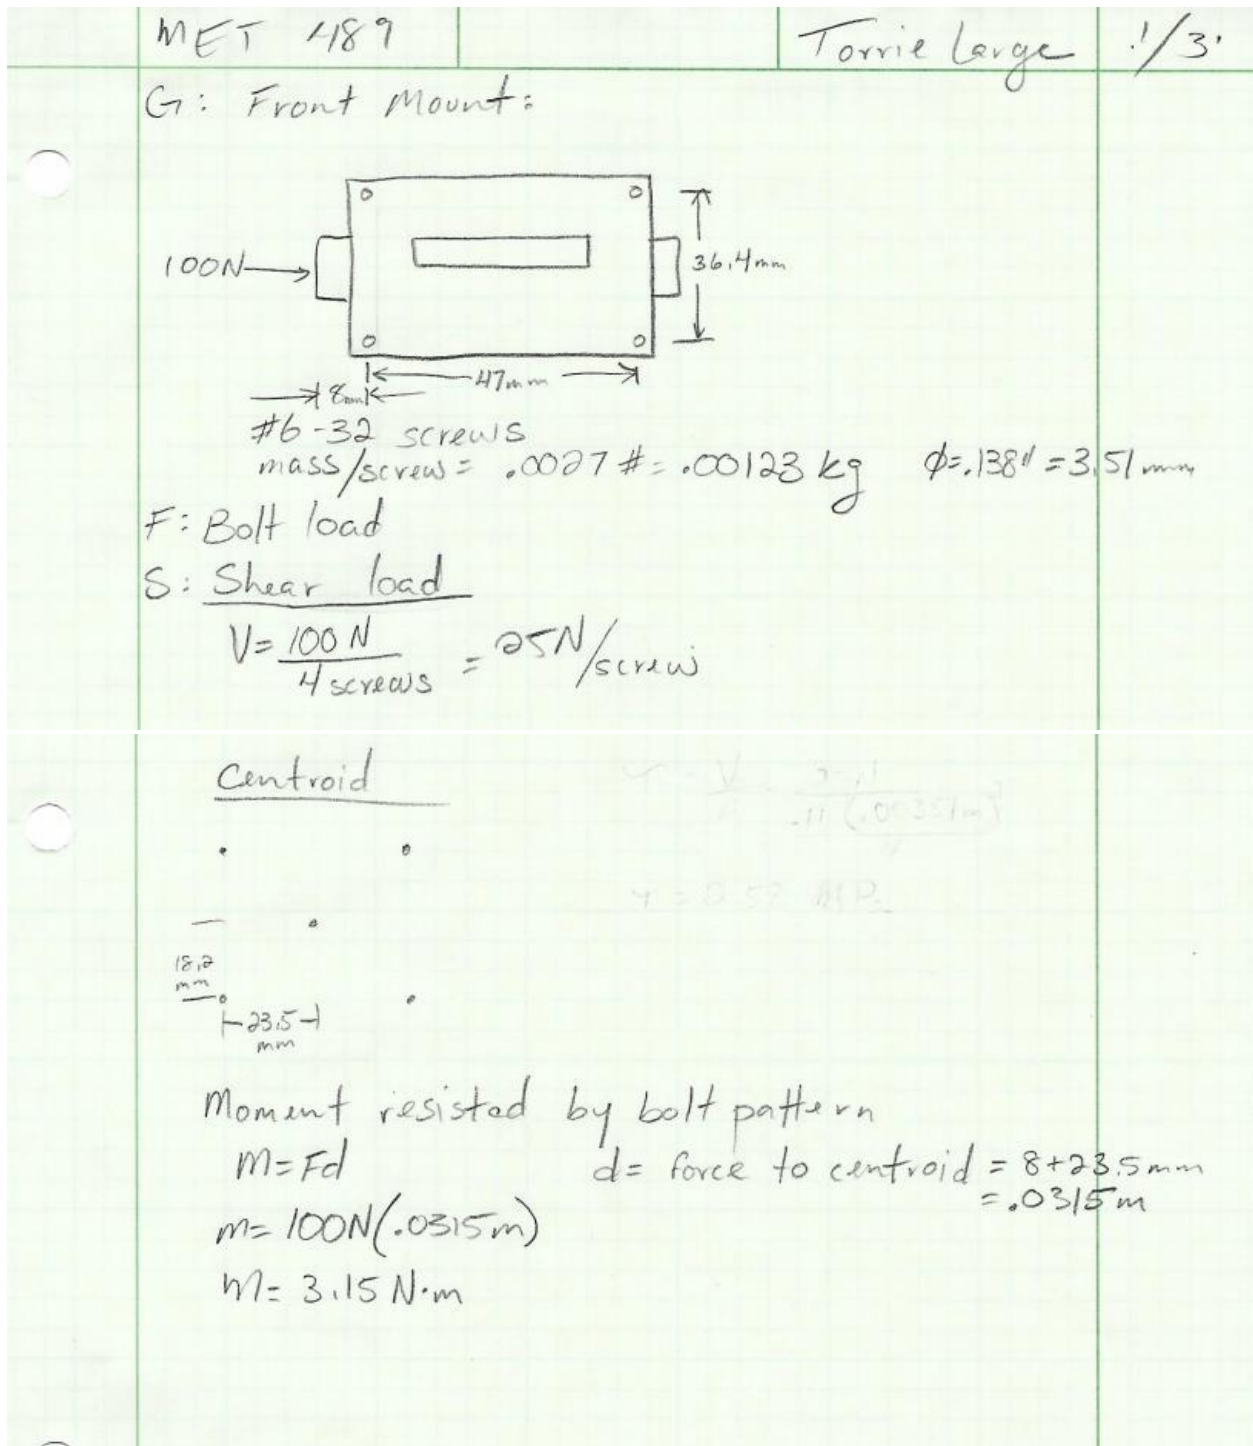 MET 489 Torrie Large 1/3
G: Front Mount:
100N
36.4mm
47mm
8mm
#6-32 screws
mass/screw = .0027 # = .00123 kg φ=.138" = 3.51mm
F: Bolt load
S: Shear load
V= 100 N / 4 screws = 25N/screw
Centroid
18.2
mm
23.5
mm
Moment resisted by bolt pattern
M=Fd d= force to centroid = 8+23.5mm
=.0315m
m= 100N(.0315m)
M= 3.15 N·m